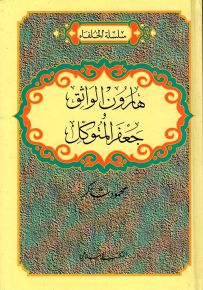 سلسلة الخلفاء
هارون الواثق
و
جعفر المتوكل
محمود شاكر
المكتب الإسلامي